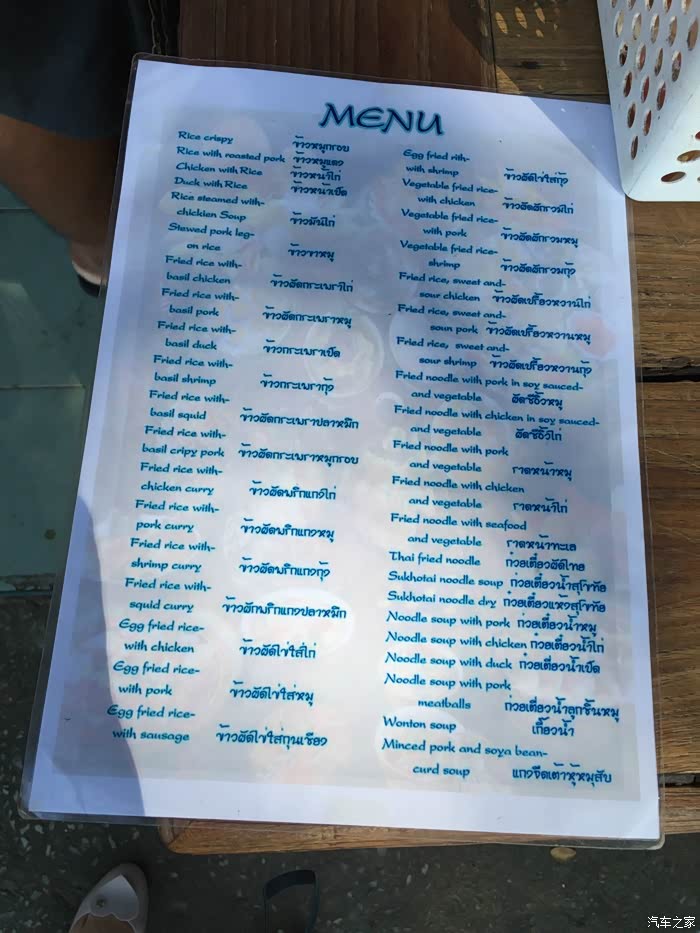 MENU
Rice crispy ข้าวหมูกรอบ
Rice with roasted pork ข้าวหมูแดง
Chicken with Rice ข้าวหน้าไก่
Duck with Rice ข้าวหน้าเป็ด
Rice steamed with-
chickien Soup ข้าวมันไก่
Stewed pork leg-
on rice ข้าวขาหมู
Fried rice with-
basil chicken ข้าวผัดกระเพราไก่
Fried rice with-
basil pork ข้าวผัดกระเพราหมู
Fried rice with-
basil duck ข้าวกระเพราเป็ด
Fried rice with-
basil shrimp ข้าวกระเพรากุ้ง
Fried rice with-
basil squid ข้าวผัดกระเพราปลาหมึก
Fried rice with-
basil cripy pork ข้าวผัดกระเพราหมูกรอบ
Fried rice with-
chicken curry ข้าวผัดพริกแกงไก่
Fried rice with-
pork curry ข้าวผัดพริกแกงหมู
Fried rice with-
shrimp curry ข้าวผัดพริกแกงกุ้ง
Fried rice with-
squid curry ข้าวผักพริกแกงปลาหมึก
Egg fried rice-
with chicken ข้าวผัดไข่ใส่ไก่
Egg fried rice-
with pork ข้าวผัดไข่ใส่หมู
Egg fried rice-
with sausage ข้าวผัดไข่ใส่กุนเชียง
Egg fried rith-
with shrimp ข้าวผัดไข่ใส่กุ้ง
Vegetable fried rice-
with chicken ข้าวผัดผักรวมไก่
Vegetable fried rice-
with pork ข้าวผัดผักรวมหมู
Vegetable fried rice-
shrimp ข้าวผัดผักรวมกุ้ง
Fried rice, sweet and-
sour chicken ข้าวผัดเปรี้ยวหวานไก่
Fried rice, sweet and-
soun pork ข้าวผัดเปรี้ยวหวานหมู
Fried rice, sweet and-
sour shrimp ข้าวผัดเปรี้ยวหวานกุ้ง
Fried noodle with pork in soy sauced-
and vegetable ผัดซีอิ้วหมู
Fried noodle with chicken in soy sauced-
and vegetable ผัดซีอิ้วไก่
Fried noodle with pork
and vegetable ราดหน้าหมู
Fried noodle with chicken
and vegetable ราดหน้าไก่
Fried noodle with seafood
and vegetable ราดหน้าทะเล
Thai fried noodle ก๋วยเตี๋ยวผัดไทย
Sukhotai noodle soup ก๋วยเตี๋ยวน้ำสุโขทัย
Sukhotai noodle dry ก๋วยเตี๋ยวแห้งสุโขทัย
Noodle soup with pork ก๋วยเตี๋ยวน้ำหมู
Noodle soup with chicken ก๋วยเตี๋ยวน้ำไก่
Noodle soup with duck ก๋วยเตี๋ยวน้ำเป็ด
Noodle soup with pork
meatballs ก๋วยเตี๋ยวน้ำลูกชิ้นหมู
Wonton soup เกี๊ยวน้ำ
Minced pork and soya bean-
curd soup แกงจืดเต้าหู้หมูสับ
汽车之家